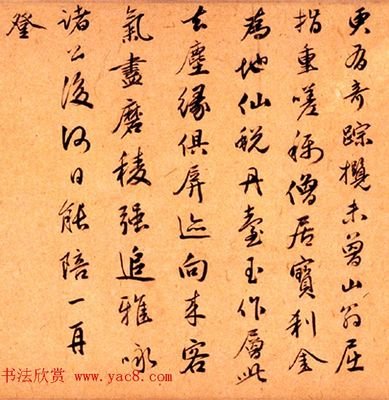 更有奇踪攬未曾山翁屈
指重嗟稱僧居寶刹金
為地仙蛻丹臺玉作層此
去塵緣俱屏迹向来客
氣盡磨稜强追雅咏
諸公後何日能陪一再
登
书法欣赏 www.yac8.com